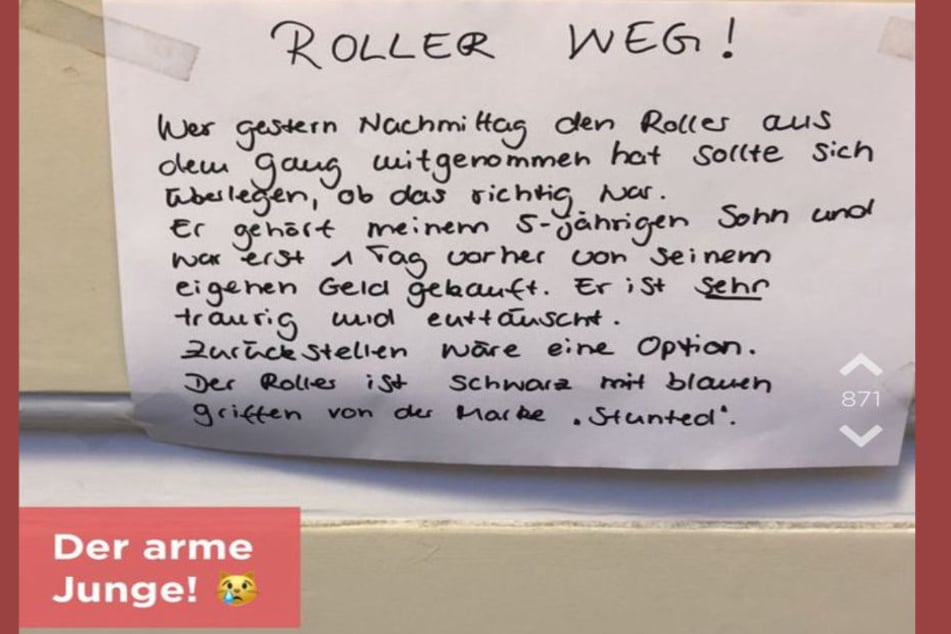 ROLLER WEG!
Wer gestern Nachmittag den Roller aus
dem Gang mitgenommen hat sollte sich
überlegen, ob das richtig war.
Er gehört meinem 5-jährigen Sohn und
war erst 1 Tag vorher von seinem
eigenen Geld gekauft. Er ist sehr
traurig und enttäuscht.
Zurückstellen wäre eine Option.
Der Roller ist schwarz mit blauen
Griffen von der Marke "Stunted".
871
Der arme
Junge! 😿